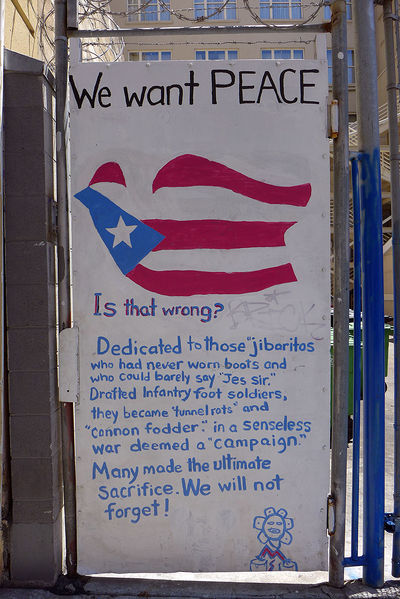 We want PEACE
Is that wrong?
Dedicated to those "jibaritos
who had never worn boots and
who could barely say "Jes sir."
Drafted Infantry foot soldiers,
they became "tunnel rats" and
"cannon fodder." in a senseless
war deemed a "campaign."
Many made the ultimate
Sacrifice. We will not
forget!